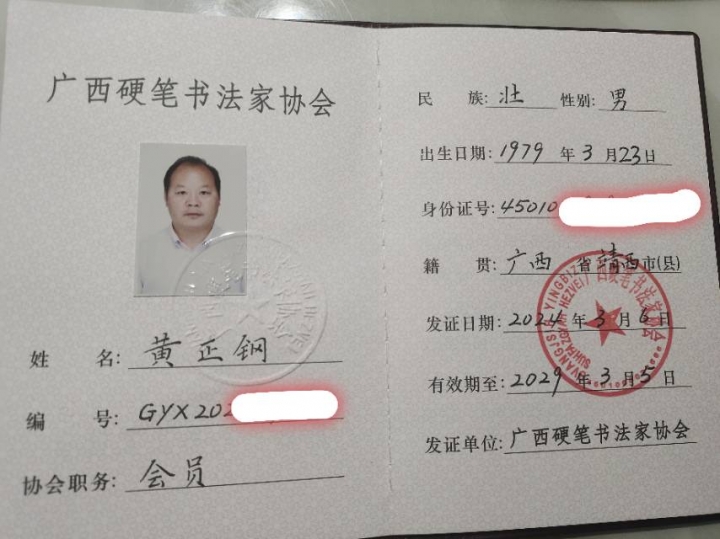 广西硬笔书法家协会
姓 名: 黄正钢
编 号: GYX202
协会职务: 会员
民 族: 壮 性别: 男
出生日期: 1979 年 3 月 23 日
身份证号: 45010
籍 贯: 广西 省 靖西 市(县)
发证日期: 2024 年 3 月 6 日
有效期至: 2029 年 3 月 5 日
发证单位: 广西硬笔书法家协会
广西硬笔书法家协会